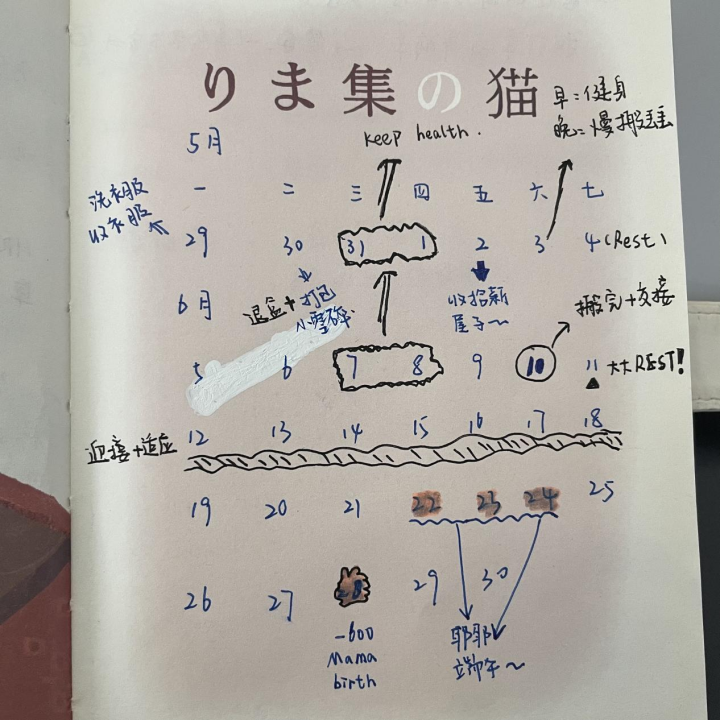 りま集の猫
早=健身
晚=慢搬
keep health.
5月
一 二 三 四 五 六 七
洗衣服
收衣服
29 30 31 1 2 3 4 (Rest)
6月
退盒+打包
小零碎
收拾新
屋子～
搬完+交接
5 6 7 8 9 10 11 大大REST!
12 13 14 15 16 17 18
迎接+适应
19 20 21 22 23 24 25
26 27 28 29 30
-600
Mama
birth
耶耶
端午～